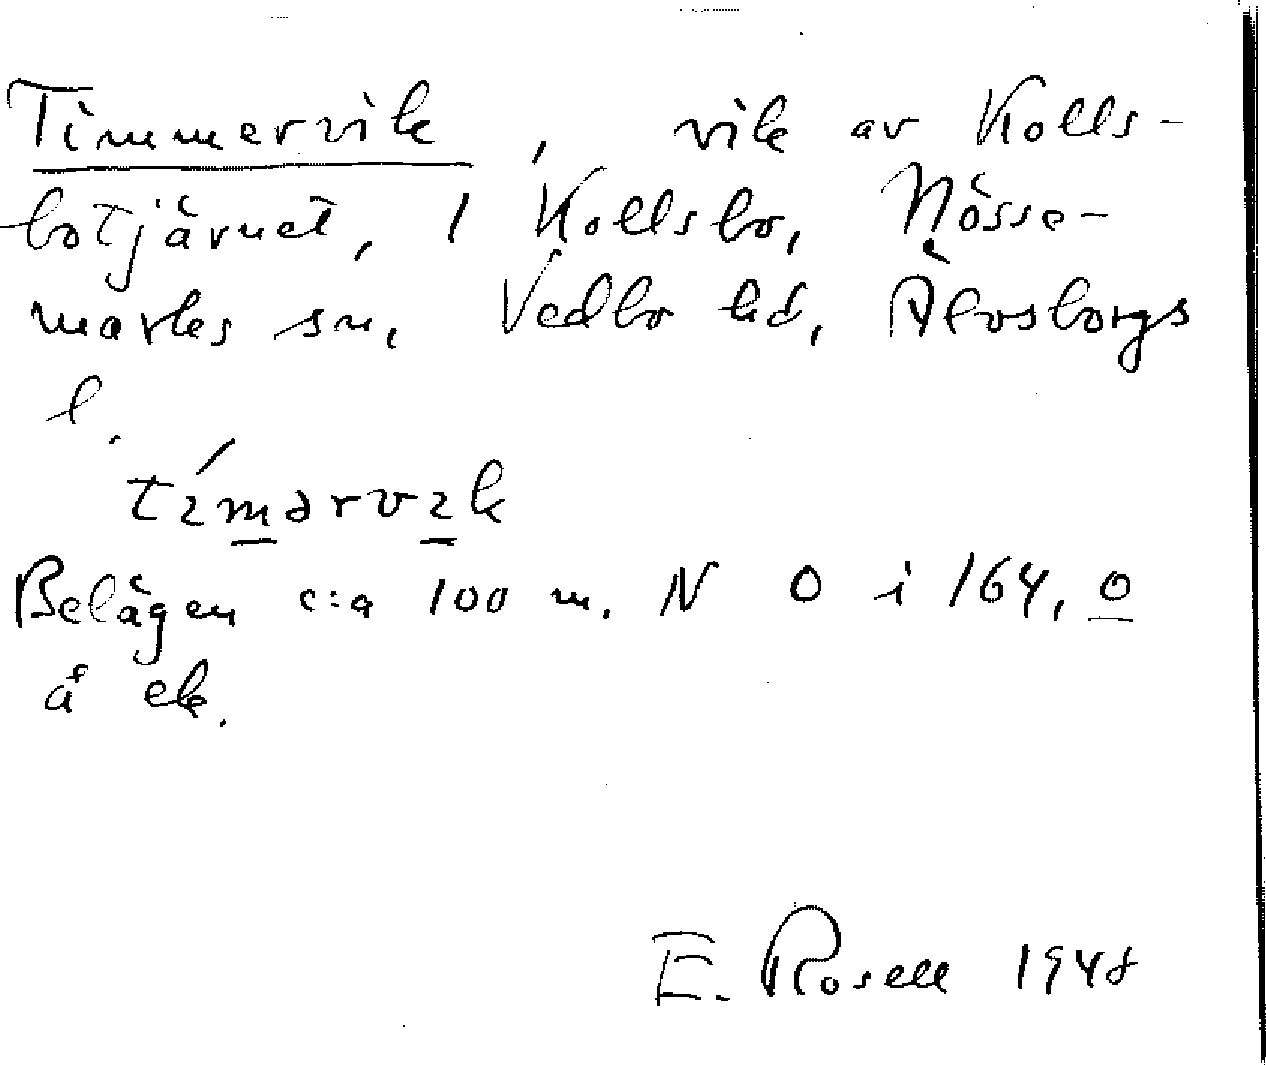 Timmervik, vik av Kolls-
botjärnet, 1 Kollsbo, Nösse-
marks sn, Vedbo hd, Älvsborgs
l.
Belägen c:a 100 m. N O i 164,0
å ek.
E. Rosell 1948